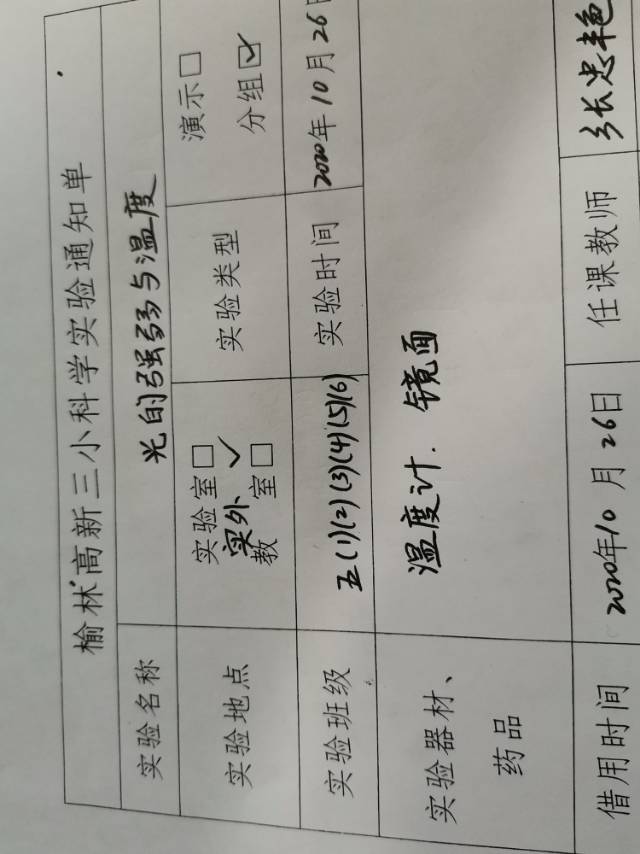 榆林高新三小科学实验通知单
实验名称 光的强弱与温度
实验地点 实验室□ 实外✓ 教室□ 实验类型 演示□ 分组☑
实验班级 五(1)(2)(3)(4)(5)(6) 实验时间 2020年10月26日
实验器材、药品 温度计. 镜面
借用时间 2020年10月26日 任课教师 张忠艳